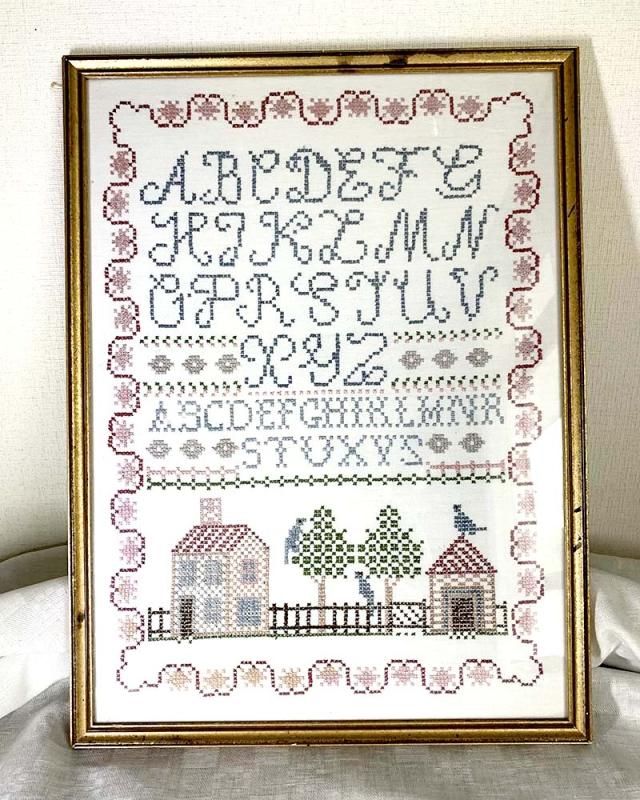 ABCDEFG
HIKLMN
OPRSTUV
XYZ
ABCDEFGHIKLMNR
STUXYZ